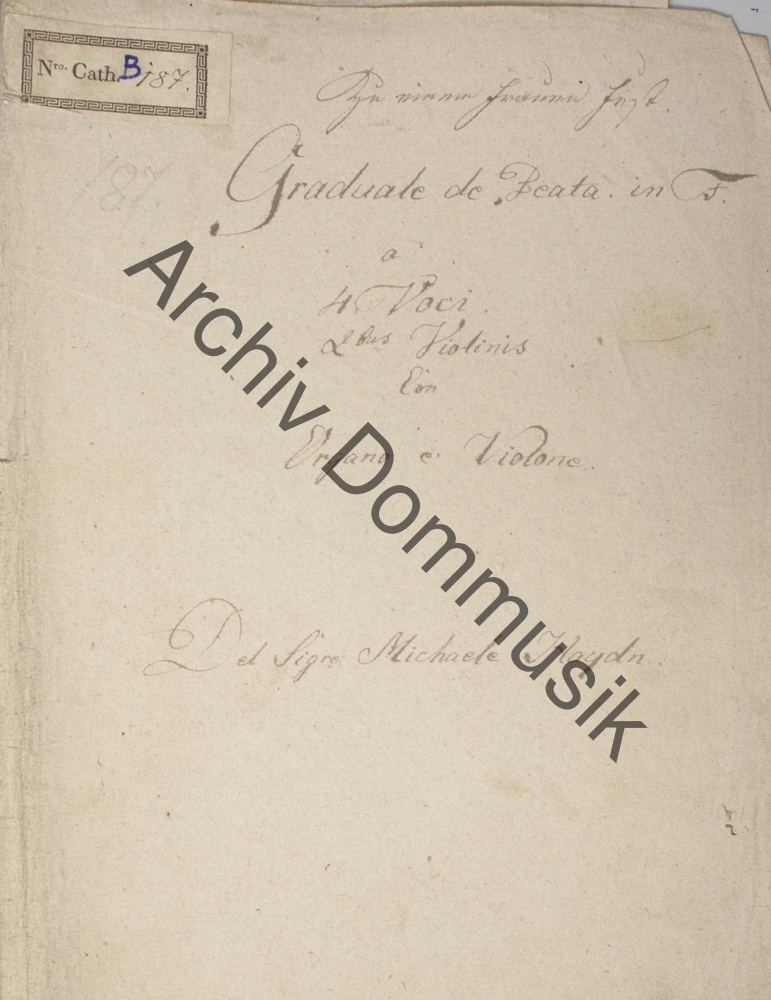 Nro. Cath. B 187.
Zu einem Frauen Fest.
187
Graduale de Beata. in F.
a
4 Voci.
2bus Violinis
Con
Organo e Violone.
Del Sigre Michaele Haydn.
Archiv Dommusik